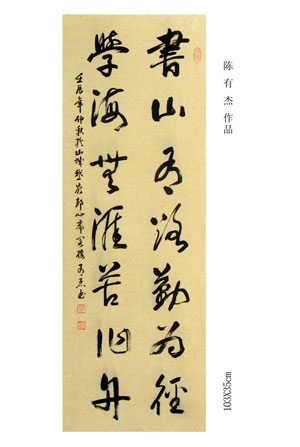 陈有杰作品
103X35cm
書山有路勤為徑
學海無涯苦作舟
壬辰年仲秋於山城